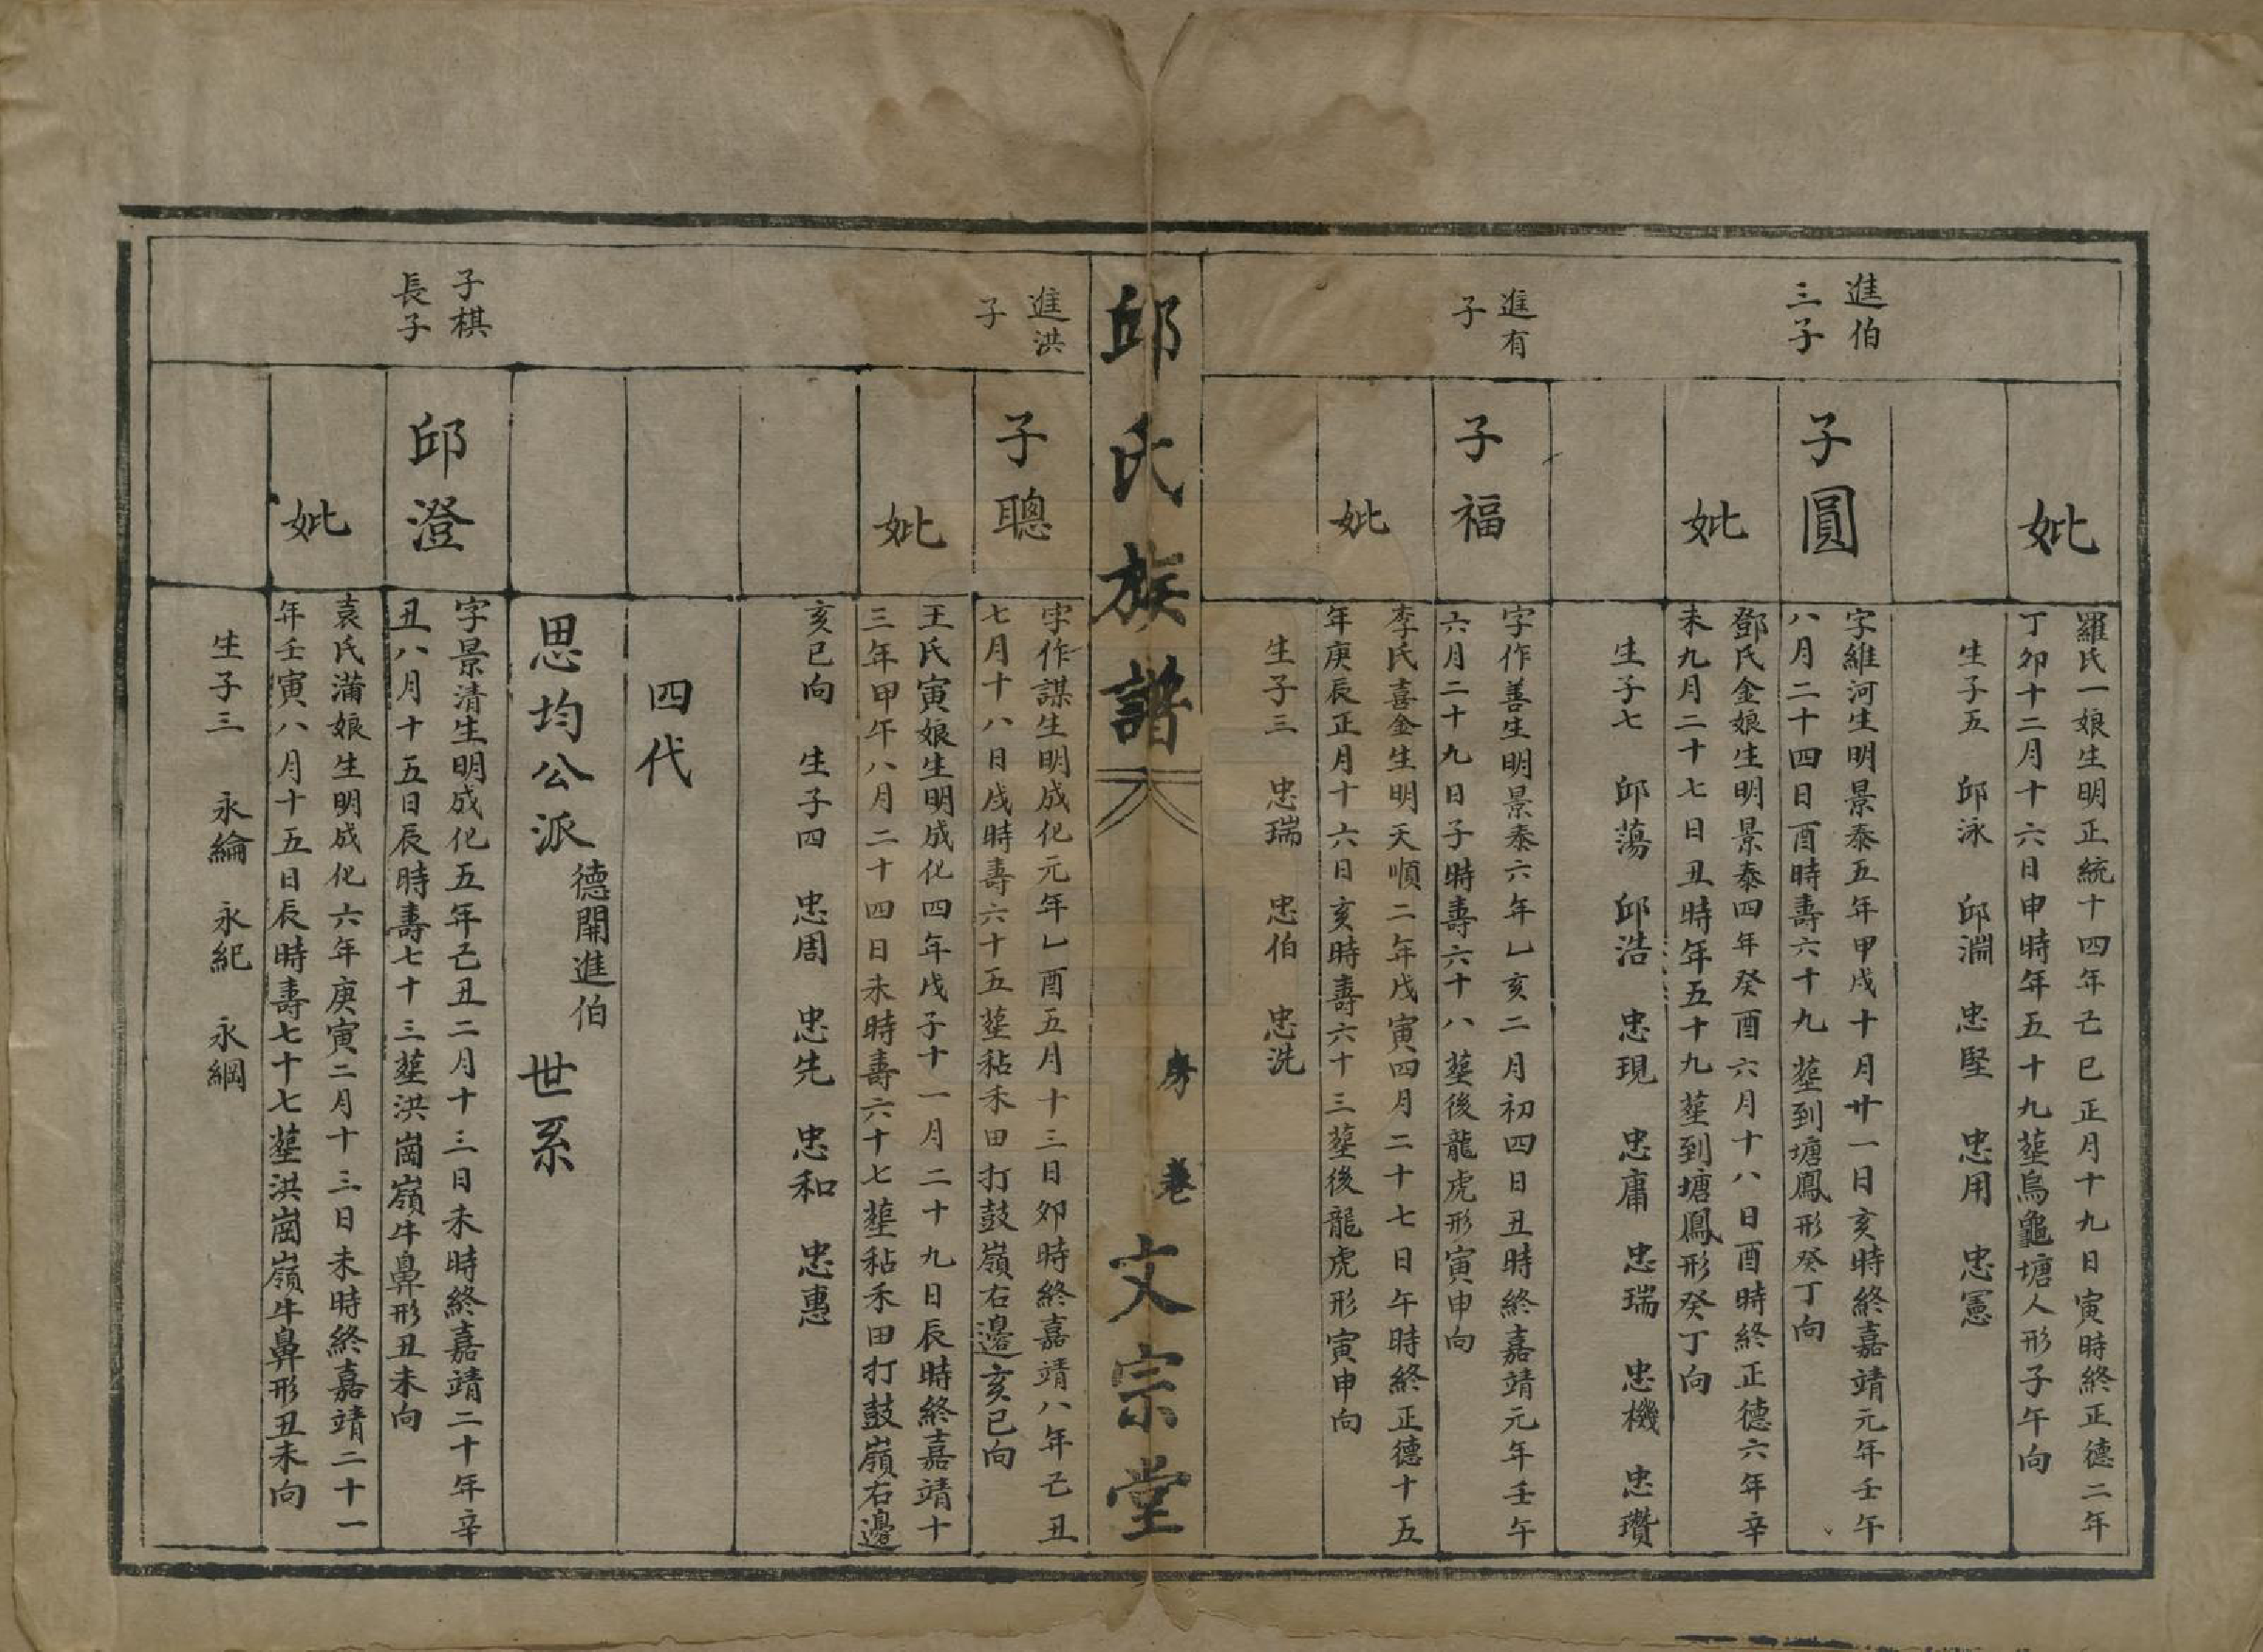 妣
羅氏一娘生明正統十四年己巳正月十九日寅時終正德二年
丁卯十二月十六日申時年五十九塟烏龜塘人形子午向
生子五 邱泳 邱淵 忠堅 忠用 忠憲
進伯
三子
子圓
字維河生明景泰五年甲戌十月廿一日亥時終嘉靖元年壬午
八月二十四日酉時壽六十九塟到塘鳳形癸丁向
妣
鄧氏金娘生明景泰四年癸酉六月十八日酉時終正德六年辛
未九月二十七日丑時年五十九塟到塘鳳形癸丁向
生子七 邱蕩 邱浩 忠現 忠庸 忠瑞 忠機 忠瓚
進有
子
子福
字作善生明景泰六年乙亥二月初四日丑時終嘉靖元年壬午
六月二十九日子時壽六十八塟後龍虎形寅申向
妣
李氏喜金生明天順二年戊寅四月二十七日午時終正德十五
年庚辰正月十六日亥時壽六十三塟後龍虎形寅申向
生子三 忠瑞 忠伯 忠洗
邱氏族譜 房 卷 文宗堂
進洪
子
子聰
字作謀生明成化元年乙酉五月十三日卯時終嘉靖八年己丑
七月十八日戌時壽六十五塟秥禾田打鼓嶺右邊亥巳向
妣
王氏寅娘生明成化四年戊子十一月二十九日辰時終嘉靖十
三年甲午八月二十四日未時壽六十七塟秥禾田打鼓嶺右邊
亥巳向 生子四 忠周 忠先 忠和 忠惠
四代
思均公派德開進伯 世系
子棋
長子
邱澄
字景清生明成化五年己丑二月十三日未時終嘉靖二十年辛
丑八月十五日辰時壽七十三塟洪崗嶺牛鼻形丑未向
妣
袁氏蒲娘生明成化六年庚寅二月十三日未時終嘉靖二十一
年壬寅八月十五日辰時壽七十七塟洪崗嶺牛鼻形丑未向
生子三 永綸 永紀 永綱